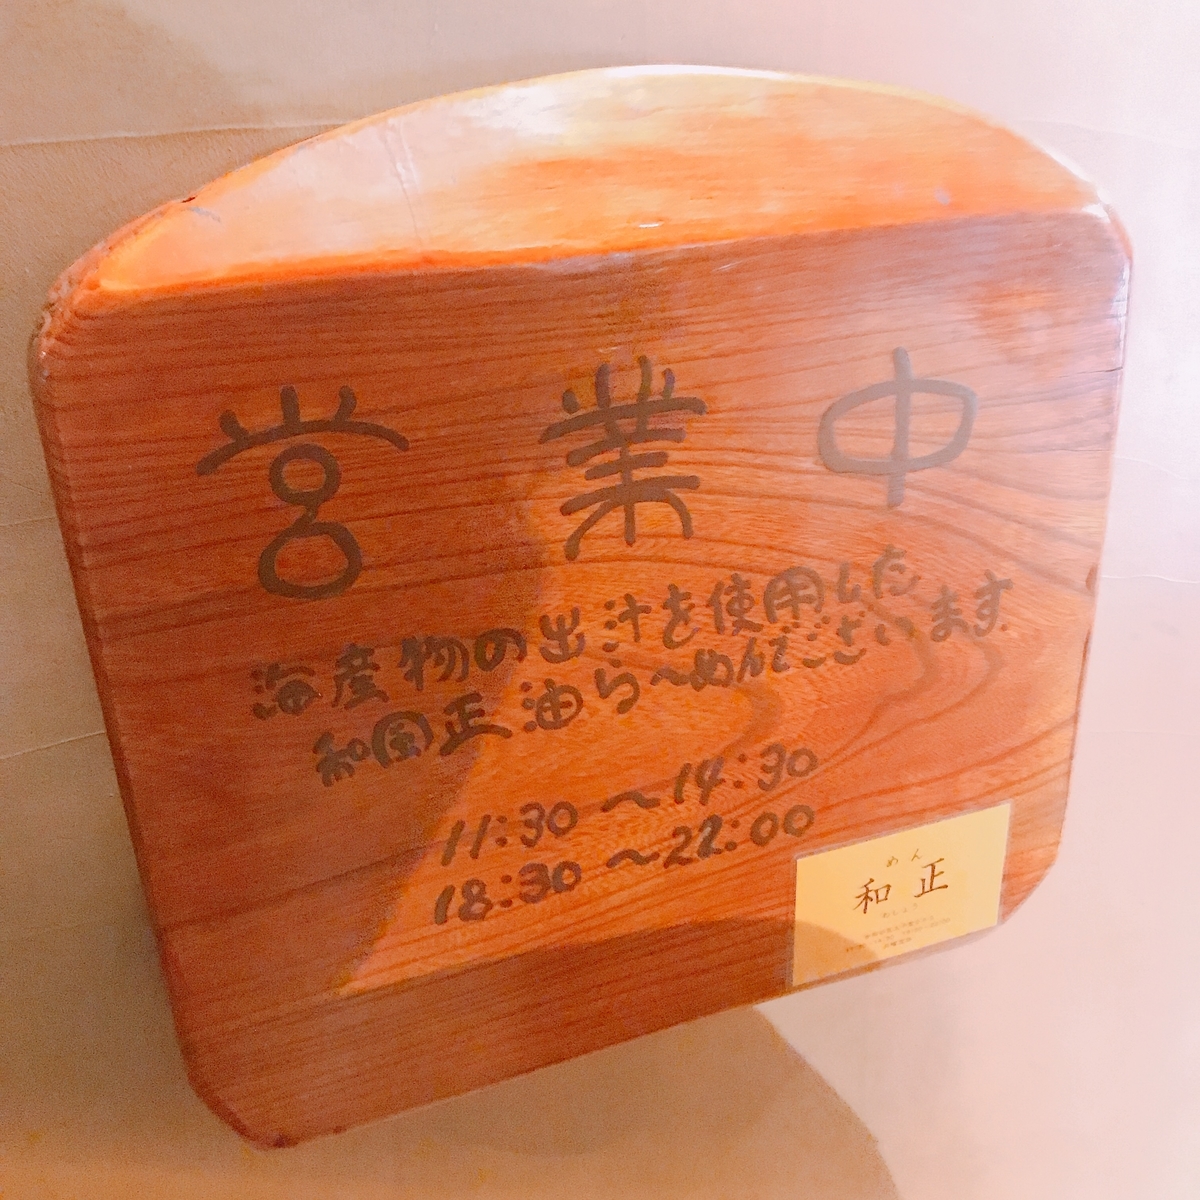 営業中
海産物の出汁を使用した
和風正油ら〜めんでございます
11:30 〜14:30
18:30 〜22:00
めん
和正